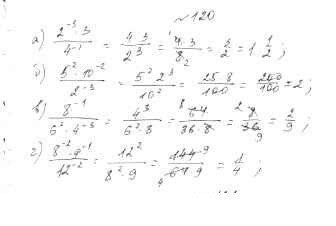 №120
а) 2⁻³·3/4⁻¹ = 4·3/2³ = 4·3/8₂ = 3/2 = 1·1/2;
б) 5²·10⁻²/2⁻³ = 5²·2³/10² = 25·8/100 = 200/100 = 2;
в) 8⁻¹/6²·4⁻³ = 4³/6²·8 = 8 64/36·8 = 2 8/36 9 = 2/9;
г) 8⁻²·9⁻¹/12⁻² = 12²/8²·9 = 144 9/4 64·9 = 1/4;